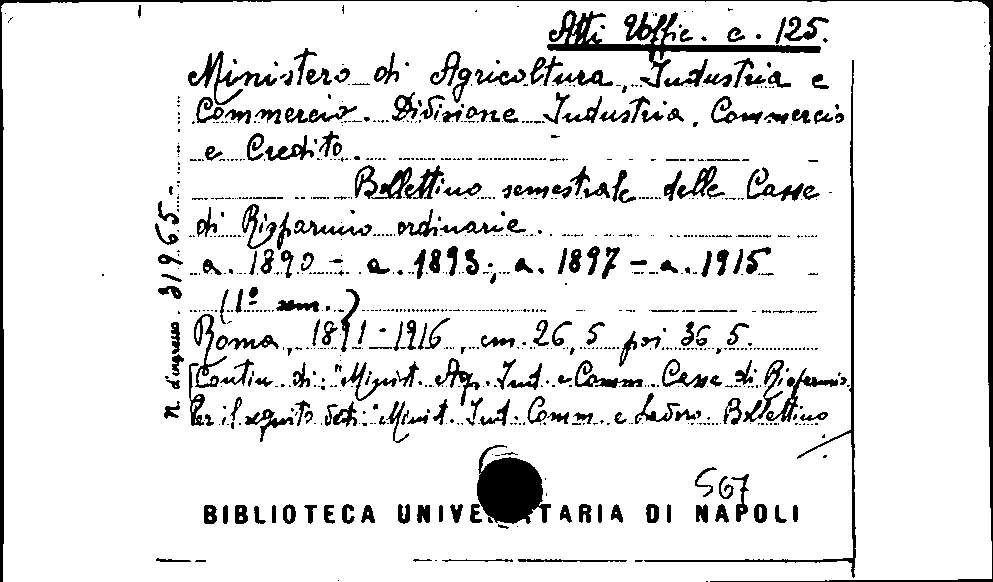 Atti Uffic. c. 125.
Ministero di Agricoltura, Industria e
Commercio. Divisione Industria, Commercio
e Credito.
Bollettino semestrale delle Casse
di Risparmio ordinarie.
a. 1890 - a. 1893; a. 1897 - a. 1915
(1º sem.)
Roma, 1891-1916, cm. 26,5 poi 36,5.
[Contin. di: "Minist. Agr. Ind. e Comm. Casse di Risparmio.
Per il seguito vedi: "Minist. Ind. Comm. e Lavoro. Bollettino
N. d'ingresso 31965-
567
BIBLIOTECA UNIVE TARIA DI NAPOLI